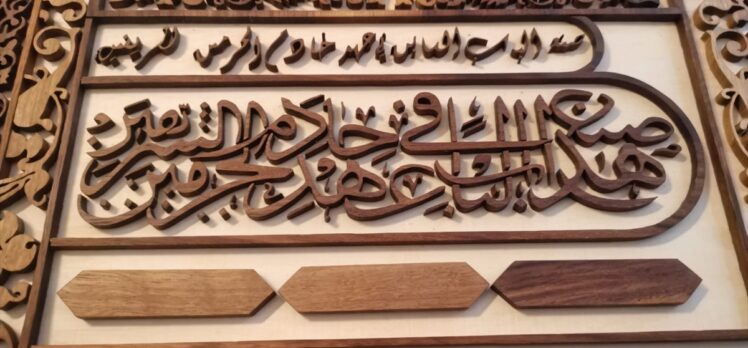 صنع الباب السابق عهد خادم الحرمين الشريفين
صنع هذا الباب في عهد خادم الحرمين الشريفين